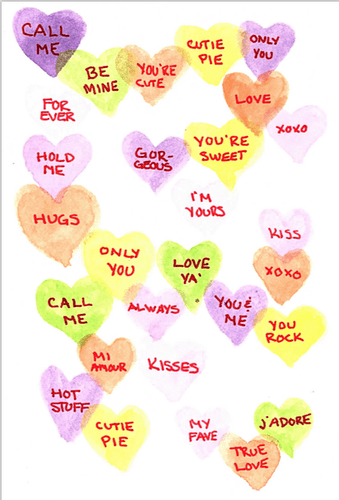 CALL
ME
BE
MINE
YOU'RE
CUTE
CUTIE
PIE
ONLY
YOU
FOR
EVER
LOVE
XOXO
HOLD
ME
GOR-
GEOUS
YOU'RE
SWEET
I'M
YOURS
HUGS
KISS
ONLY
YOU
LOVE
YA'
XOXO
CALL
ME
ALWAYS
YOU &
ME
YOU
ROCK
MI
AMOUR
KISSES
HOT
STUFF
CUTIE
PIE
MY
FAVE
J'ADORE
TRUE
LOVE